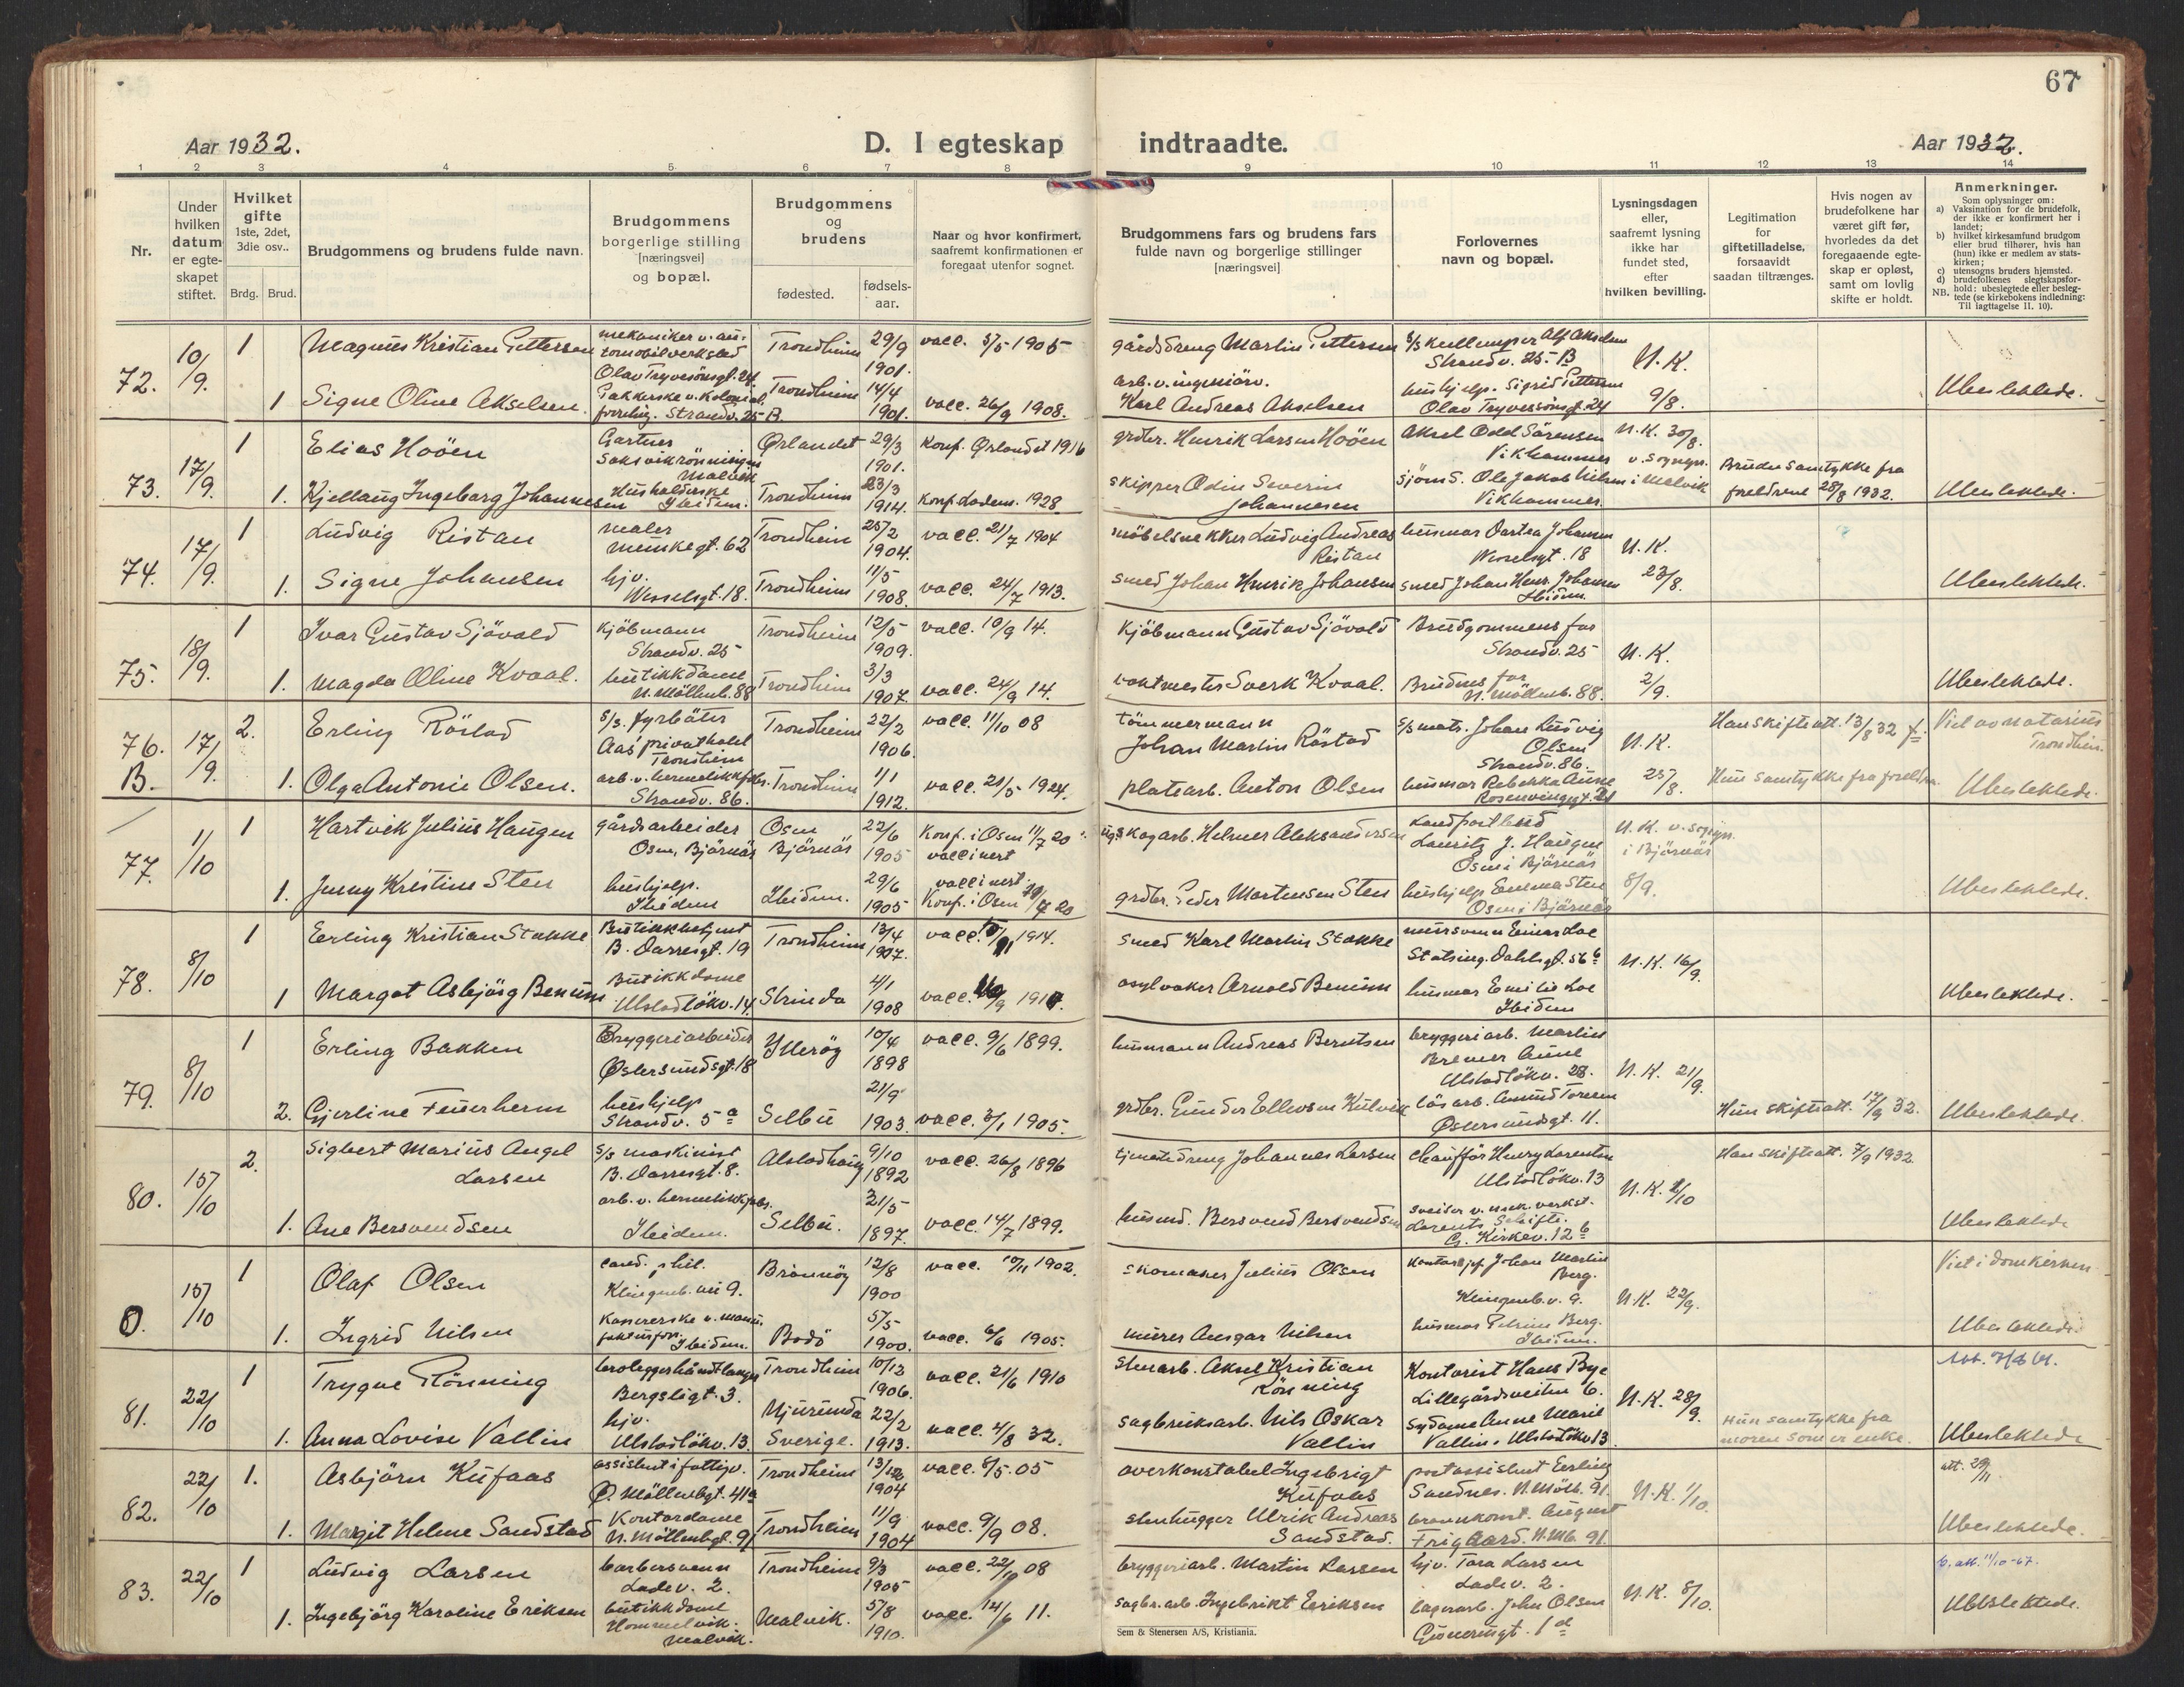 67
Aar 1932.
D. I egteskap indtraadte.
Aar 1932.
1 2 3 4 5 6 7 8 9 10 11 12 13 14
Nr.
Under hvilken datum er egteskapet stiftet.
Hvilket gifte 1ste, 2det, 3die osv..
Brdg. Brud.
Brudgommens og brudens fulde navn.
Brudgommens borgerlige stilling [næringsvei] og bopæl.
Brudgommens og brudens
fødested.
fødselsaar.
Naar og hvor konfirmert, saafremt konfirmationen er foregaat utenfor sognet.
Brudgommens fars og brudens fars fulde navn og borgerlige stillinger [næringsvei]
Forlovernes navn og bopæl.
Lysningsdagen eller, saafremt lysning ikke har fundet sted, efter hvilken bevilling.
Legitimation for giftetilladelse, forsaavidt saadan tiltrænges.
Hvis nogen av brudefolkene har været gift før, hvorledes da det foregaaende egteskap er opløst, samt om lovlig skifte er holdt.
Anmerkninger.
Som oplysninger om:
a) Vaksination for de brudefolk, der ikke er konfirmert her i landet;
b) hvilket kirkesamfund brudgom eller brud tilhører, hvis han (hun) ikke er medlem av statskirken;
c) utensogns bruders hjemsted.
d) brudefolkenes slegtskapsforhold: ubeslegtede eller beslegtede (se kirkebokens indledning: Til iagttagelse II. 10).
NB.
72. 10/9. 1 Magnus Kristian Pettersen mekaniker v. automobilverksted Olav Trygvesönsgt. 24 Trondheim 29/9 1901. vacc. 5/5 1905 gårdsdreng Martin Pettersen Alf Akselsen Strandv. 25 B N. K.
1 Signe Oline Akselsen. Pakkerske v. Kolonial forretng. Strandv. 25 B. Trondheim 14/4 1901. vacc. 26/9 1908. arb. v. ingeniörv. Karl Andreas Akselsen hushjelp. Sigrid Pettersen Olav Trygvessönsgt. 24 9/8. Ubeslektede.
73. 17/9. 1 Elias Hoöen Gartner Saksvikrönningen Malvik Ørlandet 29/3 1901. Konf. Ørlandet 1916 grdbr. Henrik Larsen Hoöen Aksel Odd Sörensen Vikhammer N. K. 30/8. v. sognpr. i Malvik
1. Kjellaug Ingeborg Johannessen Husholderske Ibidem. Trondheim 23/3 1914. Konf. Ladem. 1928 skipper Odin Severin Johannesen sjöm S. Ole Jakob Nilsen Vikhammer. Bruden samtykke fra foreldrene 25/8 1932. Ubeslektede.
74. 17/9. 1 Ludvig Ristan maler Trondheim 25/2 1904. vacc. 21/7 1904 möbelsnekker Ludvig Andreas Ristan husmor Dortea Johansen Wesselsgt. 18 N. K.
1. Signe Johansen hjv. Wesselsgt. 18. Trondheim 11/5 1908. vacc. 24/7 1913. smed Johan Henrik Johansen smed Johan Henr. Johansen Ibidem 23/8. Ubeslektede.
75. 18/9. 1 Ivar Gustav Sjövold Kjöbmann Strandv. 25 Trondheim 12/5 1909. vacc. 10/9 14. Kjöbmann Gustav Sjövold Brudgommens far Strandv. 25 N. K.
1. Magda Oline Kvaal. butikkdame N. Möllenb. 88 Trondheim 3/3 1907. vacc. 24/9 14. vaktmester Sverk Kvaal. Brudens far N. Möllenb. 88. 2/9. Ubeslektede.
76. B. 17/9. 2. Erling Röstad s/s. fyrböter Aas privathotel Trondheim Trondheim 22/2 1906. vacc. 11/10 08 tömmermann Johan Martin Röstad s/s matr. Johan Ludvig Olsen Strandv. 86. N. K. Han skifteatt. 13/8 32 Viet av notarius Trondheim.
1. Olga Antonie Olsen. arb. v. hermetikkfabr. Strandv. 86. Trondheim 1/1 1912. vacc. 21/5 1924. platearb. Anton Olsen husmor Rebekka Aune 25/8. Hun samtykke fra foreldrene Ubeslektede.
77. 1/10 1 Hartvik Julius Haugen gårdsarbeider Osen, Björnör Osen Björnör 22/6 1905 Konf. i Osen 11/7 20 skogarb. Helmer Aleksandersen Landpostbud Lauritz J. Haugen Osen i Björnör N. K. v. sognpr. i Björnör
1. Jenny Kristine Sten hushjelp. Ibidem Ibidem. 29/6 1905 Konf. i Osen 20 grdbr. Peder Martensen Sten hushjelp Emma Sten Osen i Björnör 8/9. Ubeslektede.
78. 8/10 1 Erling Kristian Stokke Butikkbetjent B. Darresgt. 19 Trondheim 13/4 1907. vacc. 1914. smed Karl Martin Stokke mursvenn Einar Loe Statsing. Dahlsgt. 56 b N. K. 16/9.
1 Margot Asbjörg Benum Butikkdame Ulstadlökv. 14. Strinda 4/1 1908 vacc. asylvaker Arnold Benum husmor Emilie Loe Ibidem Ubeslektede.
79. 8/10 1 Erling Bakken Bryggeriarbeider Østersundsgt. 18 Ytterøy 10/4 1898 vacc. 9/6 1899. husmann Andreas Berntsen bryggeriarb. Martin Bremer Aune Ulstadlökv. 28. N. K. 21/9.
2. Gjerline Feuerherm hushjelp Strandv. 5 a Selbu 21/9 1903. vacc. 3/1 1905. grdbr. Gunder Ellevsen Kulvik lösarb. Amund Toreem Østersundsgt. 11. Hun skifteatt. 17/9 32. Ubeslektede.
80. 15/10 2. Sigbert Marius Angel Larsen s/s maskinist B. Darresgt. 8. Alstadhaug 9/10 1892 vacc. 26/8 1896 tjenestedreng Johannes Larsen Chauffør Henry Lorentzen Ulstadlökv. 13 N. K. Han skifteatt. 7/9 1932.
1. Ane Bersvendsen arb. v. hermetikkfabr. Ibidem. Selbu. 31/5 1897. vacc. 14/7 1899. husmd. Bersvend Bersvendsen sveiser v. mek. verkst. G. Kirkev. 12 b Ubeslektede
0. 15/10 1 Olaf Olsen cand. phil. Klingenb. vei 9. Brönnöy 12/8 1900 vacc. 10/11 1902. skomaker Julius Olsen kontorsjef Johan Martin Berg. Klingenb. v. 9. N. K. 22/9. Viet i domkirken
1. Ingrid Nilsen Kassererske v. manufakturforr. Ibidem. Bodö 5/5 1900. vacc. 6/6 1905. murer Ansgar Nilsen husmor Berg. Ibidem. Ubeslektede.
81. 22/10 1 Trygve Rönning Bergsligt. 3. Trondheim 10/12 1906. vacc. 21/6 1910 stenarb. Aksel Kristian Rönning Kontorist Hans Bye Lillegårdsveiten 6. N. K. 28/9.
1. Anna Lovise Vallin hjv. Ulstadlökv. 13. Njurunda Sverige. 22/2 1913. vacc. 4/8 32. sagbruksarb. Nils Oskar Vallin Sydame Anne Marie Vallin. Ulstadlökv 13 Hun samtykke fra moren som er enke. Ubeslektede
82. 22/10 1. Asbjörn Kufaas assistent i fattigv. Ø. Möllenbgt. 41 a Trondheim 1904 vacc. 8/5. 05 overkonstabel Ingebrigt Kufaas postassistent Erling Sandnes. N. Möllb. 91. N. K. 1/10. att. 29/11
1. Margit Helene Sandstad Kontordame N. Möllenbgt. 91 Trondheim 11/9 1904 vacc. 9/9 08. stenhugger Ulrik Andreas Sandstad. brannkonst. August Frigaard. N. Mb. 91. Ubeslektede.
83. 22/10 1 Ludvig Larsen barbersvenn Ladev. 2. Trondheim 9/3 1905 vacc. 22/10 08 bryggeriarb. Martin Larsen hjv. Tora Larsen Ladev. 2. N. K. 8/10. att. 11/10-67.
1. Ingebjörg Karoline Eriksen butikkdame Hommelvik. Malvik. Malvik. 5/8 1910. vacc. 14/6 11. sagbr. arb. Ingebrikt Eriksen lagerarb. John Olsen Ubeslektede.
Sem & Stenersen A/S, Kristiania.